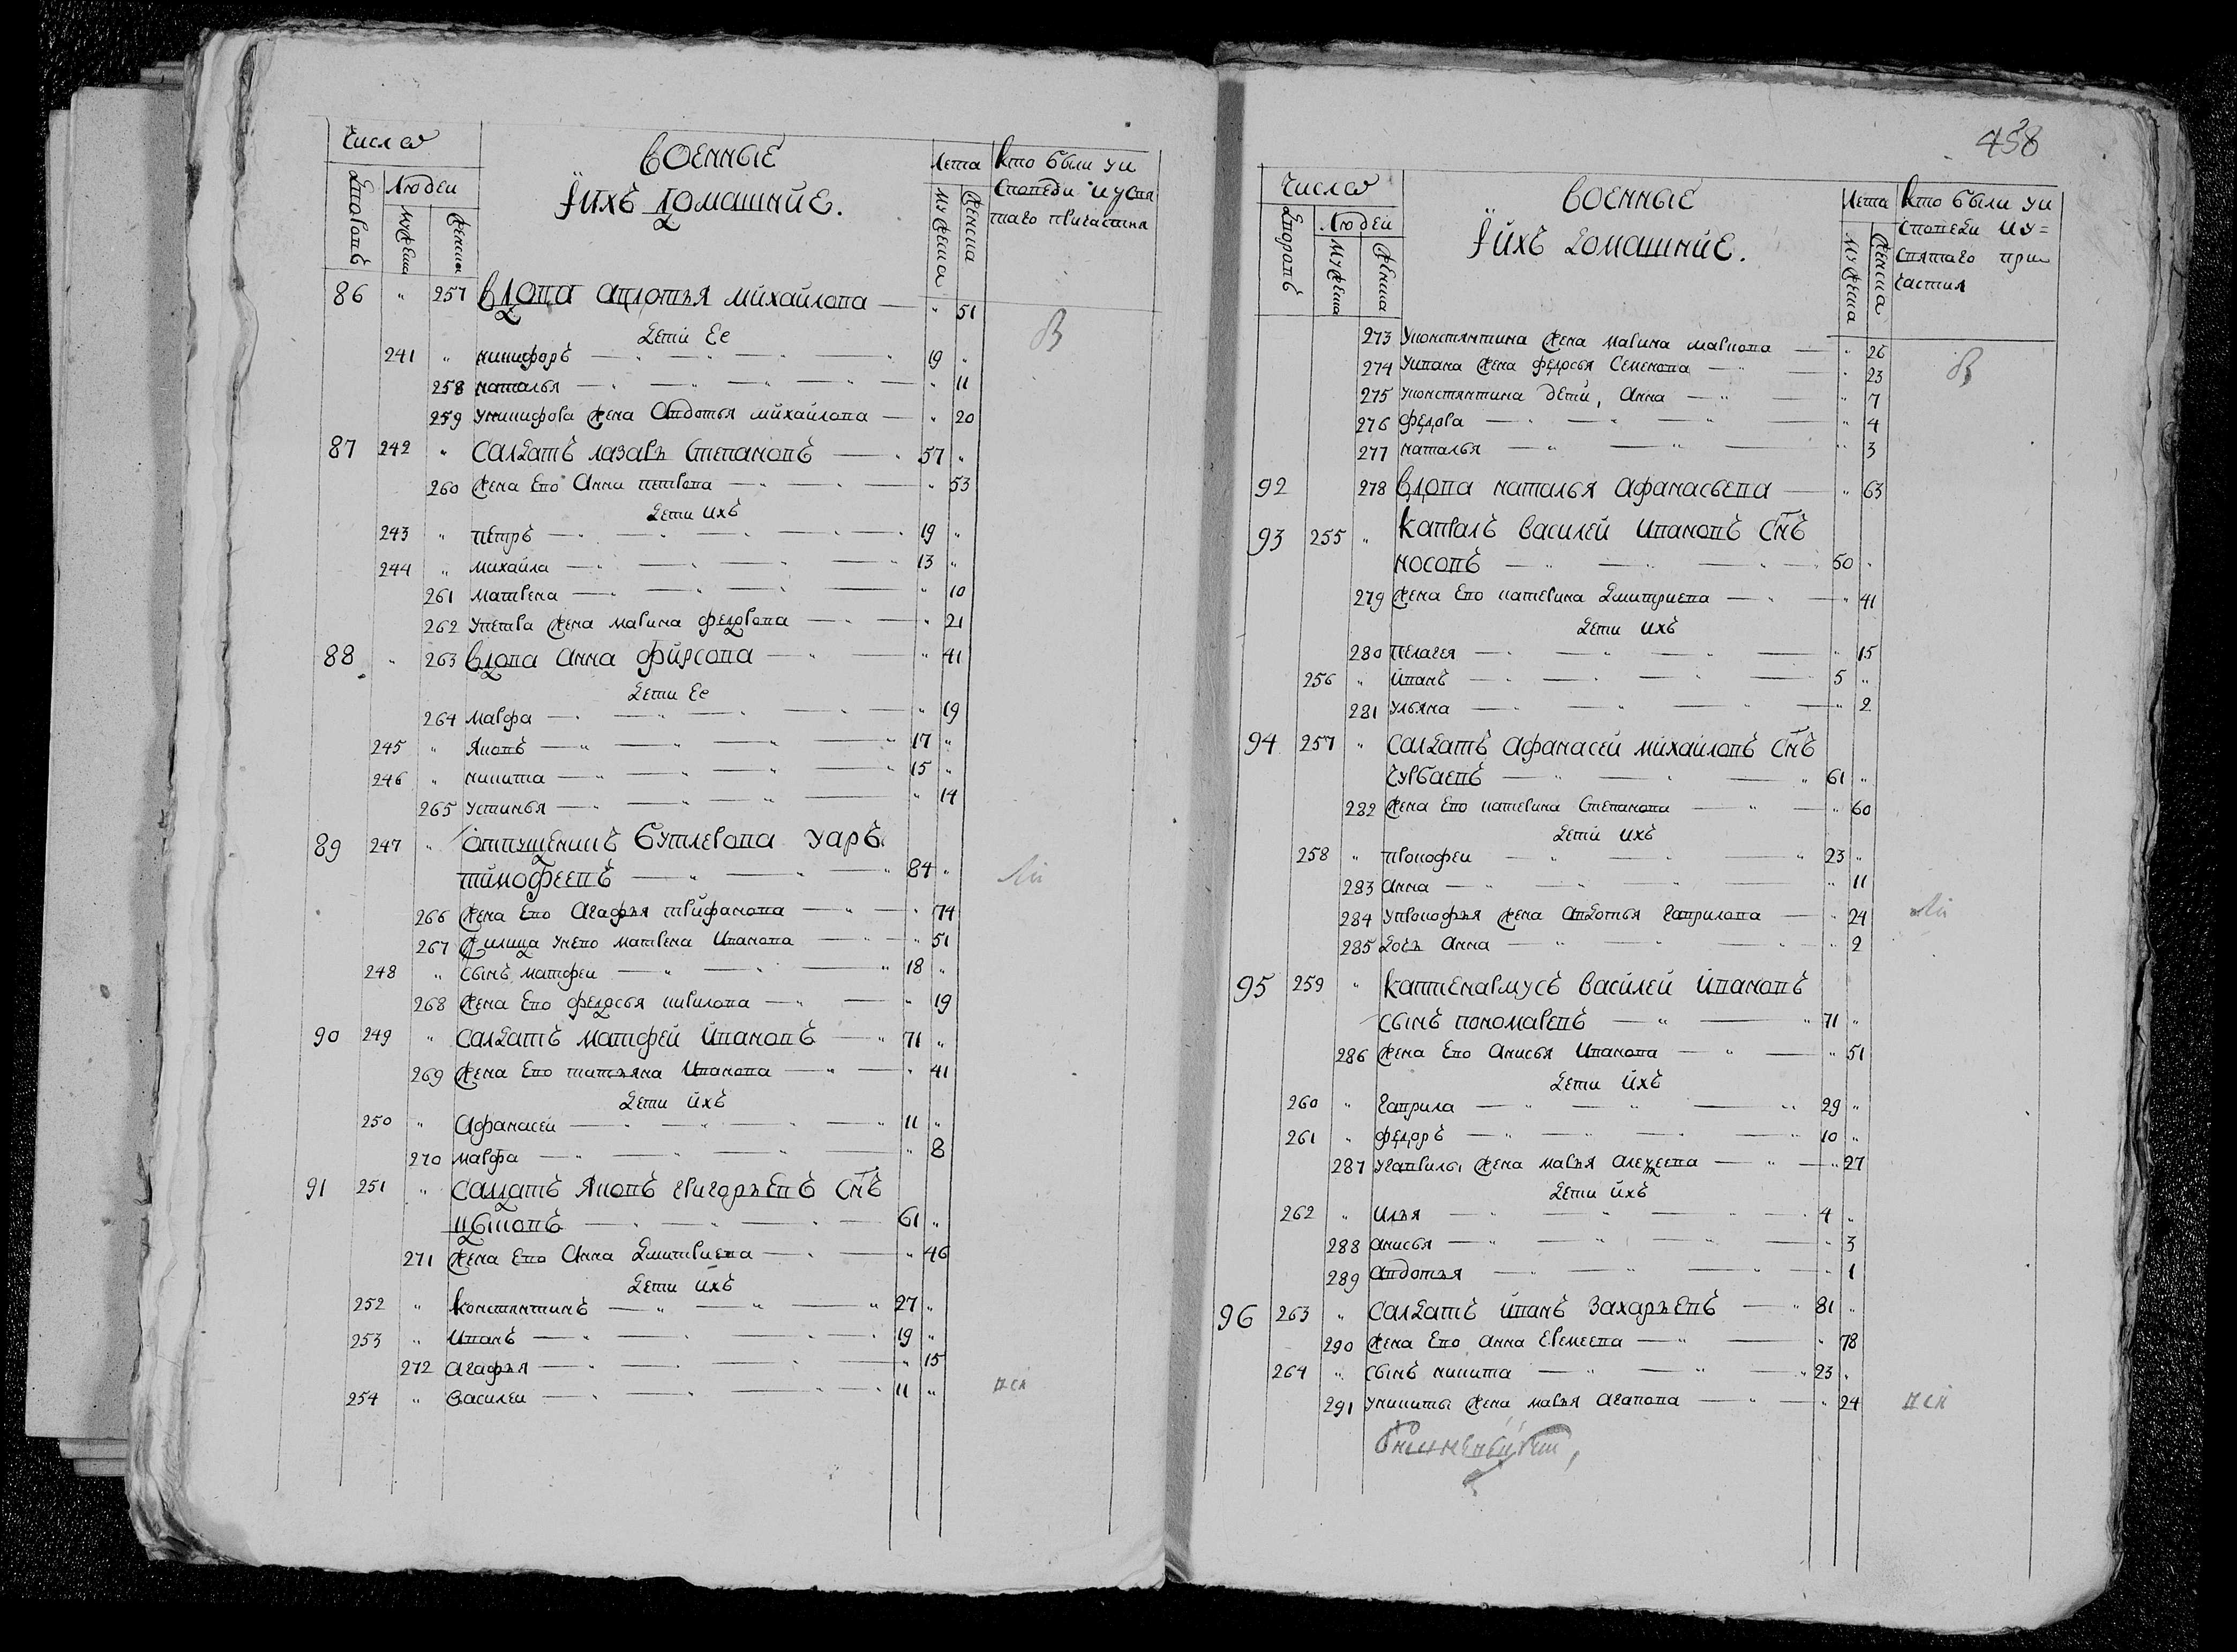 Числа
Дворовъ
Людей
Мужеска
Женска
Военные
И ихъ домашние.
Лета
Мужеска
Женска
Кто были у и
споведи и у свя
таго причастия
86 " 257 Вдова Авдотья Михайлова — " 51
Дети Ее
241 " Никифоръ — 19 "
258 Наталья — " 11
259 У Никифора жена Авдотья Михайлова — " 20
87 242 " Салдатъ Лазарь Степановъ — 57 "
260 Жена Ево Анна Петрова — " 53
Дети Ихъ
243 " Петръ — 19 "
244 " Михайла — 13 "
261 Матрена — " 10
262 У Петра жена Марина Федорова — " 21
88 " 263 Вдова Анна Фирсова — " 41
Дети Ее
264 Марфа — " 19
245 " Яковъ — 17 "
246 " Никита — 15 "
265 Устинья — " 14
89 247 " Отпущеникъ Бутлерова Уаръ
Тимофеевъ — 84 "
266 Жена Ево Агафья Трифанова — " 74
267 Жилица у нево Матрена Иванова — " 51
248 " Сынъ Матфеи — 18 "
268 Жена Ево Федосья Кирилова — " 19
90 249 " Салдатъ Матфей Ивановъ — 71 "
269 Жена Ево Татьяна Иванова — " 41
Дети ихъ
250 " Афанасеи — 11 "
270 Марфа — " 8
91 251 " Салдатъ Яковъ Григорьевъ Снъ
— 61 "
271 Жена Ево Анна Дмитриева — " 46
Дети ихъ
252 " Констянтинъ — 27 "
253 " Иванъ — 19 "
272 Агафья — " 15
254 " Василеи — 11 "
438
Числа
Дворовъ
Людей
Мужеска
Женска
Военные
И ихъ домашние.
Лета
Мужеска
Женска
Кто были у и
споведи и у =
святаго при
частия
273 У Констянтина жена Марина Маркова — " 26
274 У Ивана жена Федосья Семенова — " 23
275 У Констянтина дети, Анна — " 7
276 Федора — " 4
277 Наталья — " 3
92 278 Вдова Наталья Афанасьева — " 63
93 255 " Капралъ Василей Ивановъ Снъ
Носовъ — 50 "
279 Жена Ево Катерина Дмитриева — " 41
Дети ихъ
280 Пелагея — " 15
256 " Иванъ — 5 "
281 Ульяна — " 2
94 257 " Салдатъ Афанасей Михайловъ Снъ
Чурбаевъ — 61 "
282 Жена Ево Катерина Степанова — " 60
Дети ихъ
258 " Прокофеи — 23 "
283 Анна — " 11
284 У Прокофья жена Авдотья Гаврилова — " 24
285 Дочь Анна — " 2
95 259 " Каптенармусъ Василей Ивановъ
сынъ Пономаревъ — 71 "
286 Жена Ево Анисья Иванова — " 51
Дети ихъ
260 " Гаврила — 29 "
261 " Федоръ — 10 "
287 У Гаврилы жена Марья Алексеева — " 27
Дети ихъ
262 " Илья — 4 "
288 Анисья — " 3
289 Авдотья — " 1
96 263 " Салдатъ Иванъ Захарьевъ — 81 "
290 Жена Ево Анна Еремеева — " 78
264 " Сынъ Никита — 23 "
291 У Никиты жена Марья Агапова — " 24